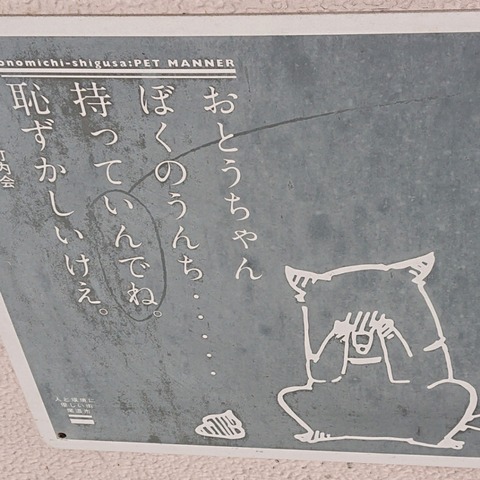 onomichi-shigusa:PET MANNER
おとうちゃん
ぼくのうんち・・・・・
持っていんでね。
恥ずかしいけえ。
町内会
人と環境に
優しい街
尾道市